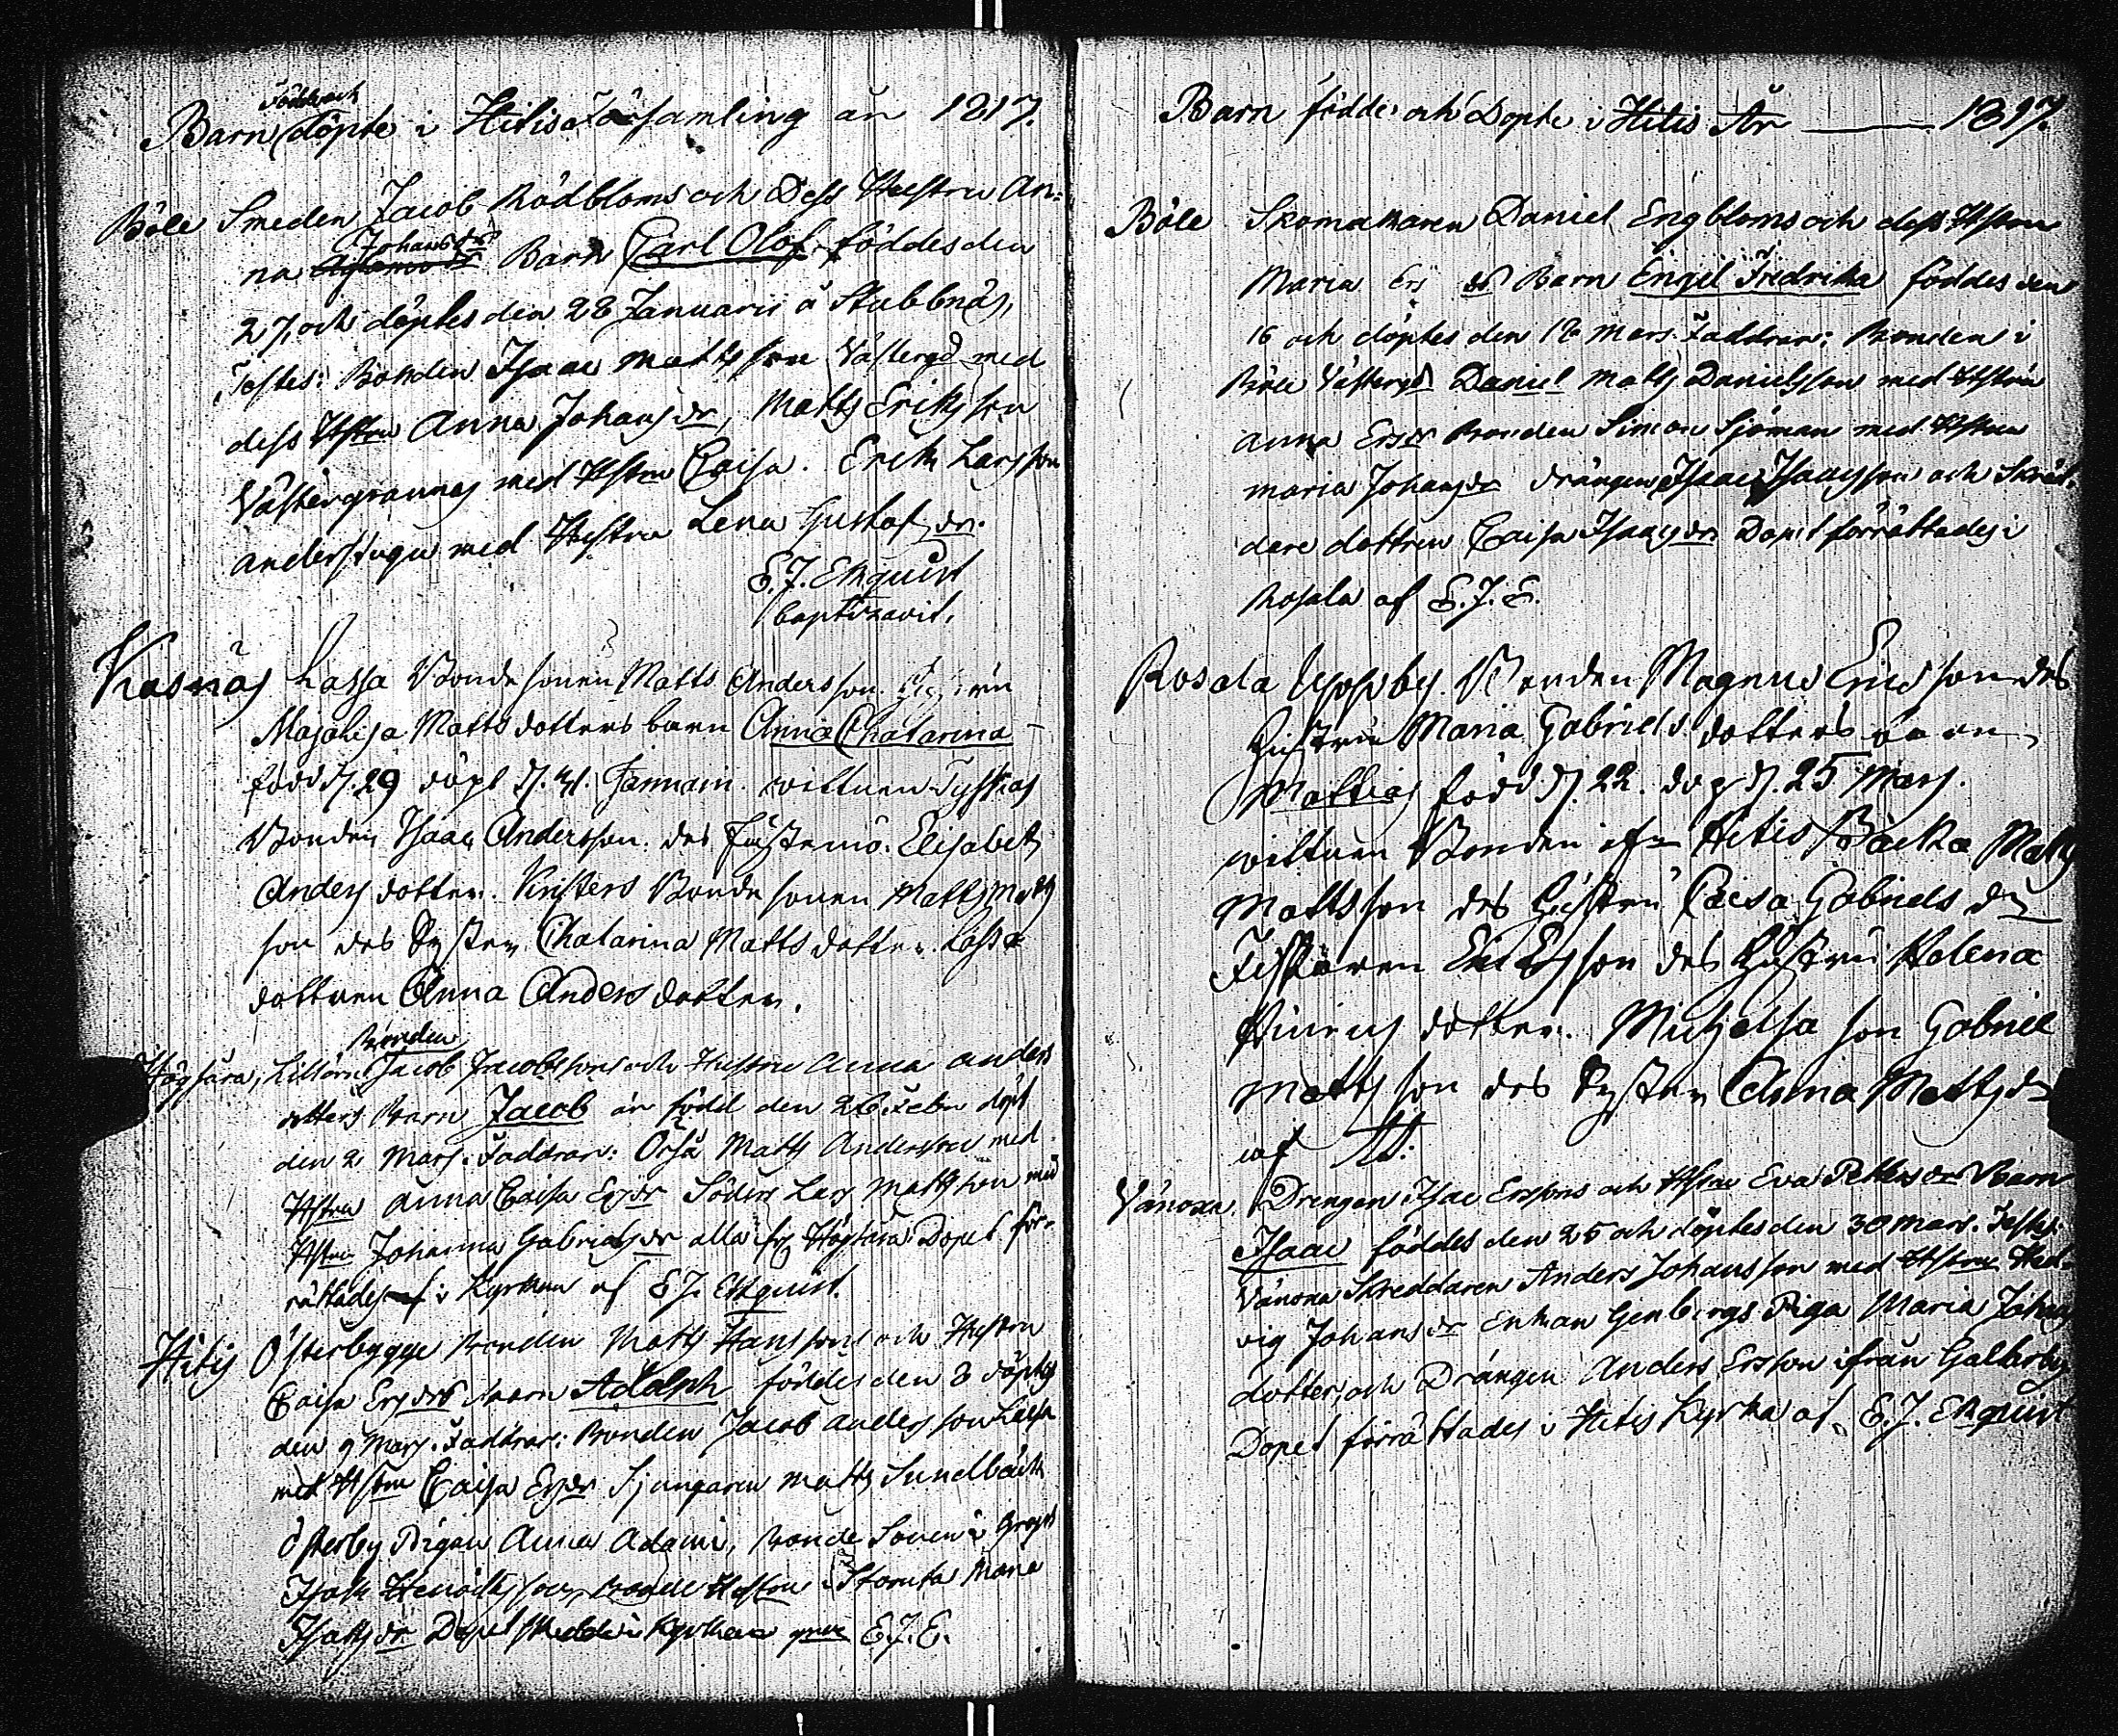 Födde och
Barn döpte i Hitis Församling år 1817.
Böle Smeden Jacob Rödbloms och Dess Hustru An-
Johansdr
na Barn Carl Olof föddes den
27, och döptes den 28 Januarii å Stubbnäs,
Testes: Bonden Isaac Mattsson Västergd med
dess Hstru Anna Johansdr, Matts Eriksson
Västergrannas med Hstru Caisa. Erik Larsson
anderstugu med Hustru Lena Gustafsdr.
E. J. Ekquist
baptizavit.
Kasnäs Lassa Bonde sonen Matts Andersson
Majalisa Matts dotters barn Anna Chatarina
född d. 29 döpt d. 31. Januarii. wittnen Tysknas
Bonden Isaac Andersson. des Fästemö. Elisabeth
Anders dotter. Kristers Bonde sonen Matts Matts
son des Syster Chatarina Matts dotter. Lassa
dottren Anna Anders dotter.
Bonden
Högsåra, Lillörn Jacob Jacobssons och Hustru Anna anders
dotters Barn Jacob är född den 26. Febr döpt
den 2 Mars. Faddrar: Örså Matts Andersson med
Hstru Anna Caisa Ersdr Söders Lars Mattsson med
Hstru Johanna Gabrielsdr alla ifr Högsåra Dopet för-
rättades i Kyrkan af E J. Ekquist.
Hitis Österbygge Bonden Matts Hanssons och Hustru
Caisa Ersdrs barn Adolph föddes den 8 döptes
den 9 Mars. Faddrar: Bonden Jacob Andersson Lassa
med Hstru Caisa Ersdr Sjungaren Matts Sundbäck
Österby Pigan Anna Adami, Bonde Sonen i
Isak Henriksson, Bonde Hustru i Stornta Maria
Isaksdr Dopet skedde i Kyrkan genm E. J. E.
Barn födde och Döpte i Hitis År 1817.
Böle Skomakaren Daniel Engbloms och dess Hstru
Maria Ers dr Barn Engel Fredrika föddes den
16 och döptes den 18 Mars. Faddrar: Bonden i
Böle Västergd Daniel Matts Danielsson med Hstru
Anna Ersdr Bonden Simon Sjöman med Hstru
Maria Johansdr drängen Isaac Isaacsson och Skräd-
dare dottren Caisa Isaacsdr. Dopet förrättades i
Rosala af E. J. E.
Rosala Uppby. Bonden Magnus Ericsson des
Hustru Maria Gabriels dotters barn
Mattias född d. 22. döp d. 25 Mars.
wittnen Bonden ifr Hitis Backa Matts
Mattsson des Hustru Caisa Gabriels dr
Fiskaren Eric Ersson des Hustru Helena
Hinrics dotter. Michelsa son Gabriel
Mattsson des Syster Anna Mattsdr
af
Vänoxa. Drengen Isac Erssons och Hstru Eva Petters dr Barn
Isaac föddes den 25 och döptes den 30 mars. Testes:
Vänoxa Skreddaren Anders Johansson med Hstru Hed-
vig Johansdr Enkan Genbergs Piga Maria Johans
dotter, och Drängen Anders Ersson ifrån Galtarby
Dopet förrättades i Hitis Kyrka af E. J. Ekquist